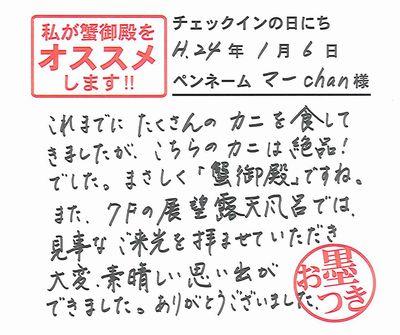 私が蟹御殿を
オススメ
します!!
チェックインの日にち
H.24年 1月 6日
ペンネーム マーchan様
これまでに たくさんの カニを食して
きましたが、こちらのカニは絶品!
でした。まさしく「蟹御殿」ですね。
また、7Fの展望露天風呂では、
見事なご来光を拝ませていただき
大変、素晴しい思い出が
できました。ありがとうございました。
墨
おつき